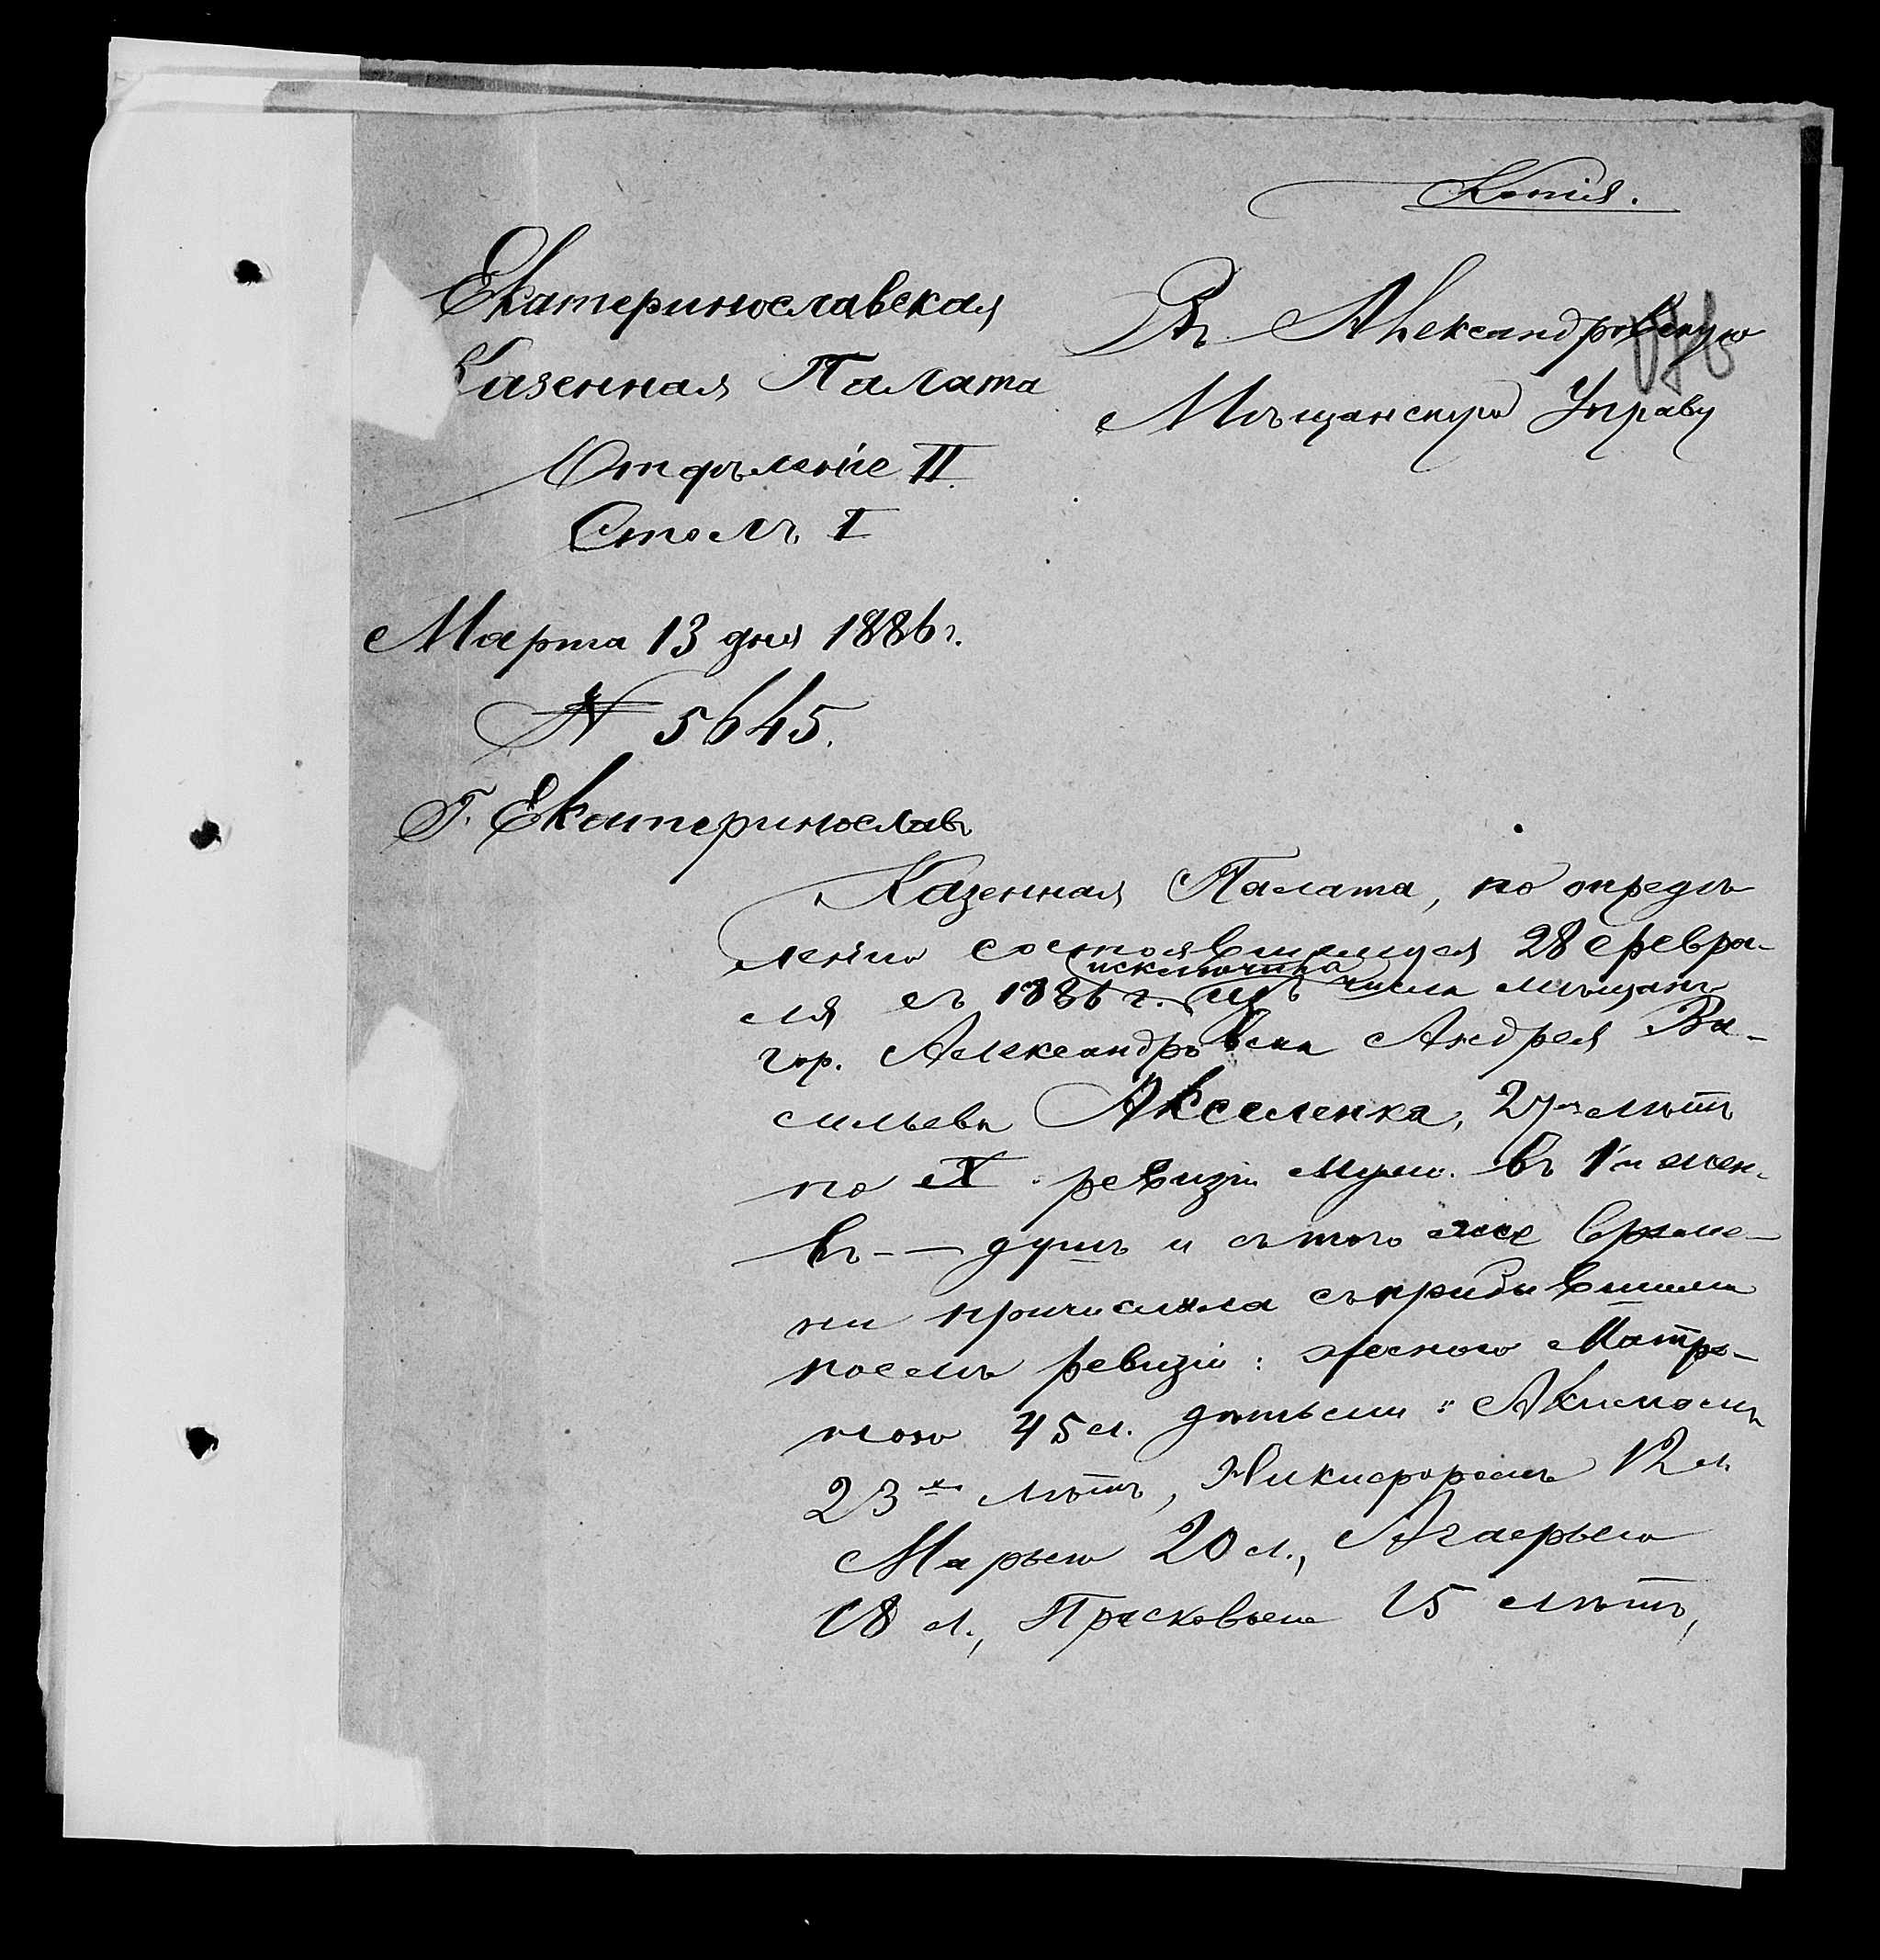 Копія.
Екатеринославская
Казенная Палата
Отдѣленіе II
Столъ I
Марта 13 дня 1886 г.
№ 5645.
Г. Екатеринославъ
Въ Александровскую
Мѣщанскую Управу
Казенная Палата, по опредѣ
ленію состоявшемуся 28 февра-
исключила
ля съ 1886 г. изъ числа мѣщанъ
гор. Александровска Андрея Ва-
сильева Акселенка, 27 лѣтъ
по X ревизіи муж. въ 1й жен.
въ - - душѣ и съ того же време-
ни причислила съ прибывшими
послѣ ревизіи: женою Матро-
ною 45 л. дѣтьми: Акимомъ
23хъ лѣтъ, Никифоромъ 12 л.
Марьею 20 л., Агафьею
18 л., Прасковьею 15 лѣтъ,